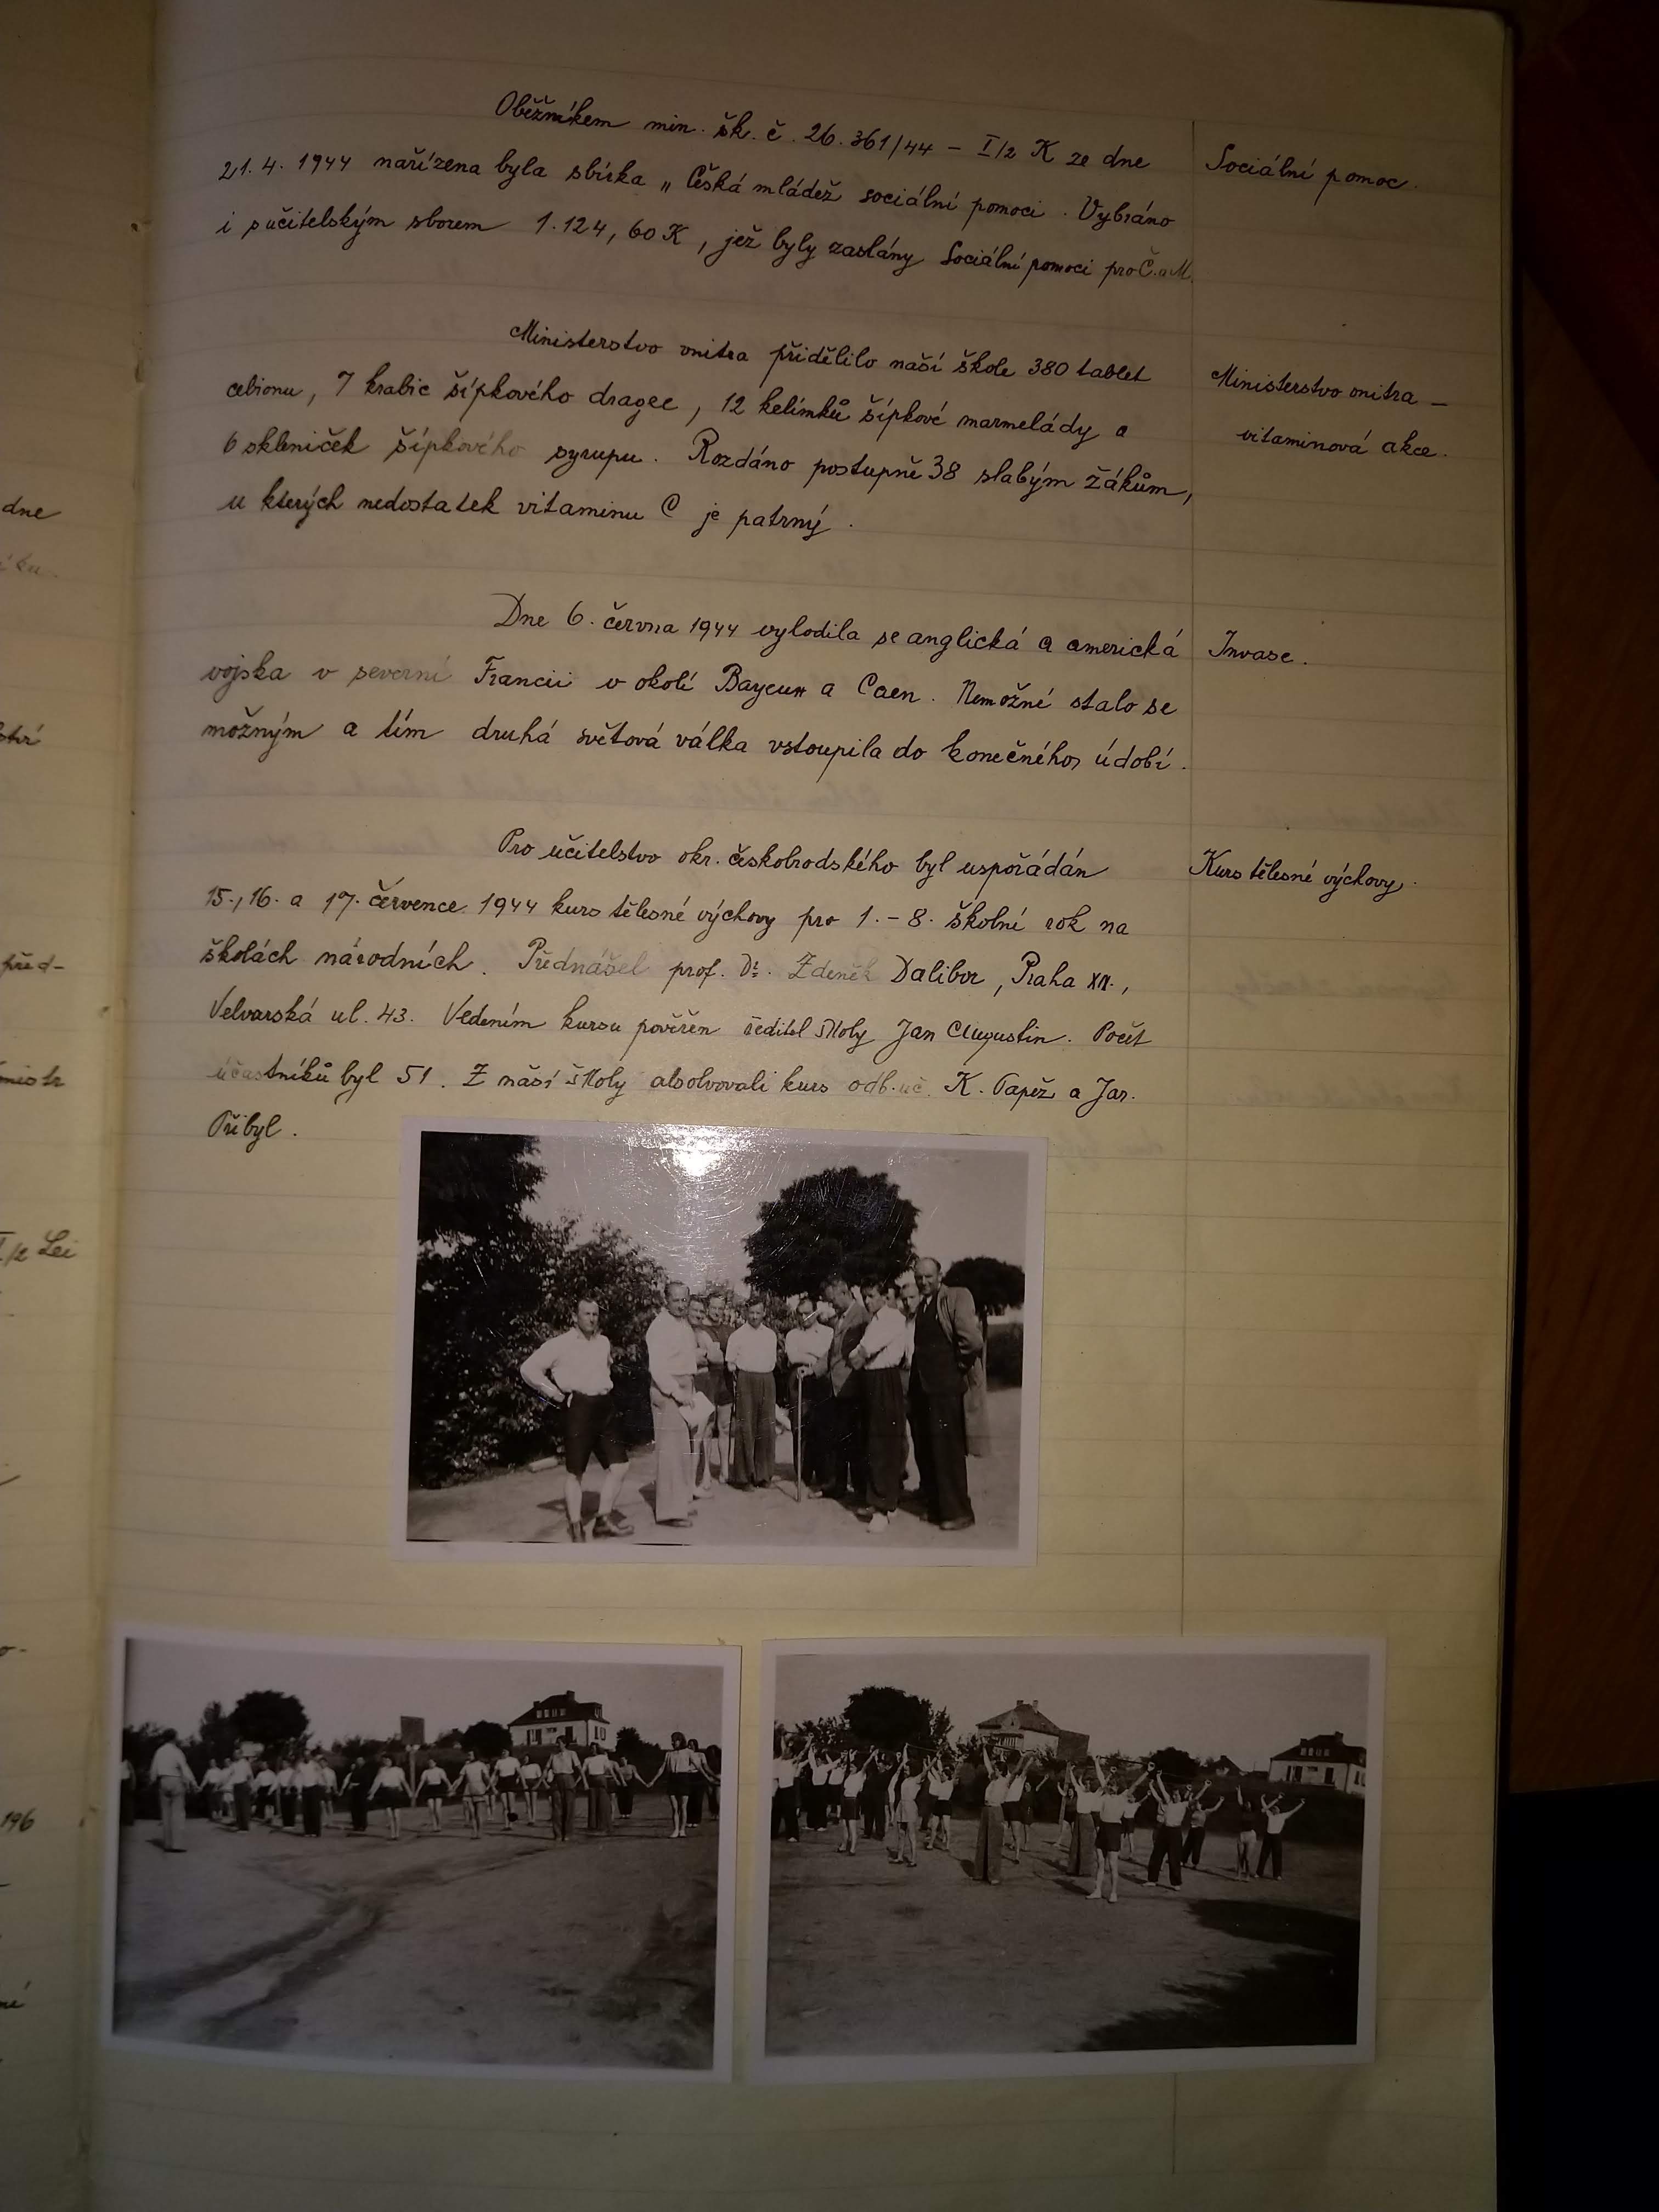 Oběžníkem min. šk. č. 26.361/44 – I/2 K ze dne
21.4. 1944 nařízena byla sbírka „ Česká mládež sociální pomoci . Vybráno
i s učitelským sborem 1.124,60 K , jež byly zaslány Sociální pomoci pro Č.a M.
Sociální pomoc.
Ministerstvo vnitra přidělilo naší škole 380 tablet
cebionu, 7 krabic šípkového dragee, 12 kelímků šípkové marmelády a
6 skleniček šípkového syrupu. Rozdáno postupně 38 slabým žákům,
u kterých nedostatek vitaminu C je patrný .
Ministerstvo vnitra –
vitaminová akce.
Dne 6. června 1944 vylodila se anglická a americká
vojska v severní Francii v okolí Bayeux a Caen. Nemožné stalo se
možným a tím druhá světová válka vstoupila do konečného údobí.
Invase.
Pro učitelstvo okr. českobrodského byl uspořádán
15., 16. a 17. července 1944 kurs tělesné výchovy pro 1. – 8. školní rok na
školách národních. Přednášel prof. Dr. Zdeněk Dalibor, Praha XIX.,
Velvarská ul. 43. Vedením kursu pověřen ředitel školy Jan Augustin. Počet
účastníků byl 51. Z naší školy absolvovali kurs odb. uč. K. Papež a Jar.
Přibyl .
Kurs tělesné výchovy.
dne
před-
I/2 Lei
196